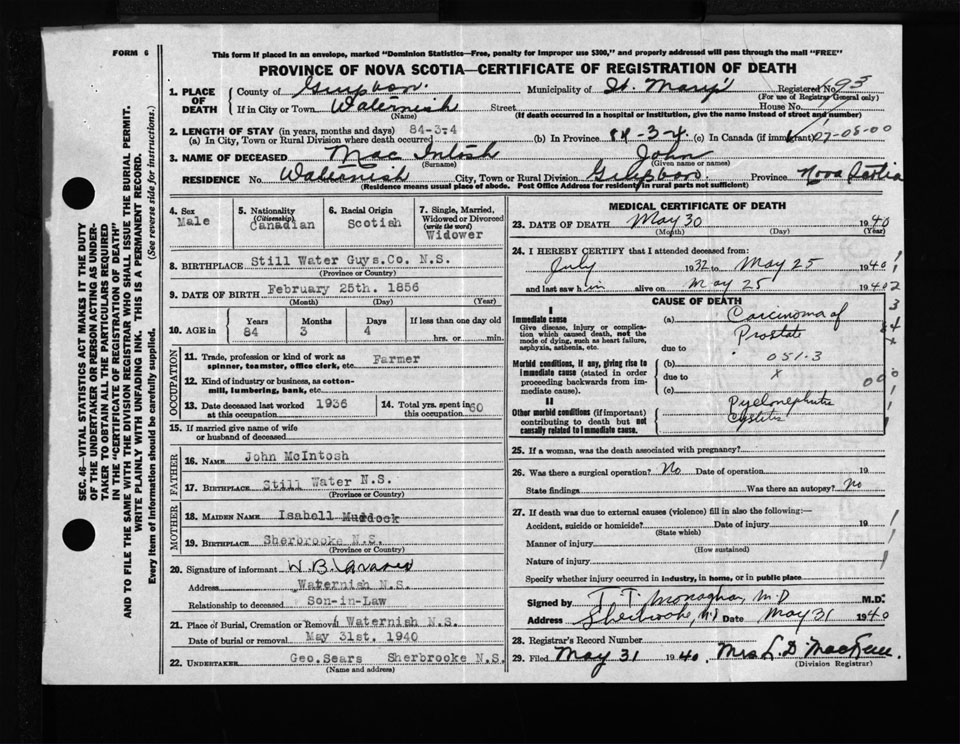 FORM 6
This form if placed in an envelope, marked "Dominion Statistics—Free, penalty for improper use $300," and properly addressed will pass through the mail "FREE"
PROVINCE OF NOVA SCOTIA—CERTIFICATE OF REGISTRATION OF DEATH
SEC. 46—VITAL STATISTICS ACT MAKES IT THE DUTY
OF THE UNDERTAKER OR PERSON ACTING AS UNDER-
TAKER TO OBTAIN ALL THE PARTICULARS REQUIRED
IN THE "CERTIFICATE OF REGISTRATION OF DEATH"
AND TO FILE THE SAME WITH THE DIVISION REGISTRAR WHO SHALL ISSUE THE BURIAL PERMIT.
WRITE PLAINLY WITH UNFADING INK. THIS IS A PERMANENT RECORD.
Every item of information should be carefully supplied. (See reverse side for instructions.)
1. PLACE OF DEATH
County of Municipality of St. Mary's Registered No. 693
(For use of Registrar General only)
If in City or Town Street House No.
(Name) (If death occurred in a hospital or institution, give the name instead of street and number)
2. LENGTH OF STAY (in years, months and days) 84-3-4
(a) In City, Town or Rural Division where death occurred (b) In Province 84-3-4 (c) In Canada (if immigrant) 27-05-00
3. NAME OF DECEASED Mac Intosh John
(Surname) (Given name or names)
RESIDENCE No. City, Town or Rural Division Province Nova Scotia
(Residence means usual place of abode. Post Office Address for residents in rural parts not sufficient)
4. Sex
Male
5. Nationality
(Citizenship)
Canadian
6. Racial Origin
Scotish
7. Single, Married,
Widowed or Divorced
(write the word)
Widower
8. BIRTHPLACE Still Water Guys.Co. N.S.
(Province or Country)
9. DATE OF BIRTH February 25th. 1856
(Month) (Day) (Year)
10. AGE in Years Months Days If less than one day old
84 3 4 hrs. or min.
OCCUPATION
11. Trade, profession or kind of work as Farmer
spinner, teamster, office clerk, etc.
12. Kind of industry or business, as cotton-
mill, lumbering, bank, etc.
13. Date deceased last worked 1936
at this occupation
14. Total yrs. spent in
this occupation 60
15. If married give name of wife
or husband of deceased
FATHER
16. NAME John McIntosh
17. BIRTHPLACE Still Water N.S.
(Province or Country)
MOTHER
18. MAIDEN NAME Isabell Murdock
19. BIRTHPLACE Sherbrooke N.S.
(Province or Country)
20. Signature of informant W.B.
Address Waternish N.S.
Relationship to deceased Son-in-Law
21. Place of Burial, Cremation or Removal Waternish N.S.
Date of burial or removal May 31st. 1940
22. UNDERTAKER Geo.Sears Sherbrooke N.S.
(Name and address)
MEDICAL CERTIFICATE OF DEATH
23. DATE OF DEATH May 30 1940
(Month) (Day) (Year)
24. I HEREBY CERTIFY that I attended deceased from:
July 1932 to May 25 1940
and last saw him alive on May 25 1940
CAUSE OF DEATH
I
Immediate cause
Give disease, injury or complica-
tion which caused death, not the
mode of dying, such as heart failure,
asphyxia, asthenia, etc.
(a) Carcinoma of
Prostate
due to
Morbid conditions, if any, giving rise to
immediate cause (stated in order
proceeding backwards from im-
mediate cause).
(b) 051.3
due to x
(c)
II
Other morbid conditions (if important)
contributing to death but not
causally related to immediate cause.
Pyelonephritis
Cystitis
25. If a woman, was the death associated with pregnancy?
26. Was there a surgical operation? No Date of operation 19
State findings Was there an autopsy? No
27. If death was due to external causes (violence) fill in also the following:—
Accident, suicide or homicide? Date of injury 19
(State which)
Manner of injury
(How sustained)
Nature of injury
Specify whether injury occurred in industry, in home, or in public place
Signed by T.T. Monaghan, M.D M.D.
Address Sherbrooke, N.S Date May 31 1940
28. Registrar's Record Number
29. Filed May 31 1940. Mrs L.D.
(Division Registrar)